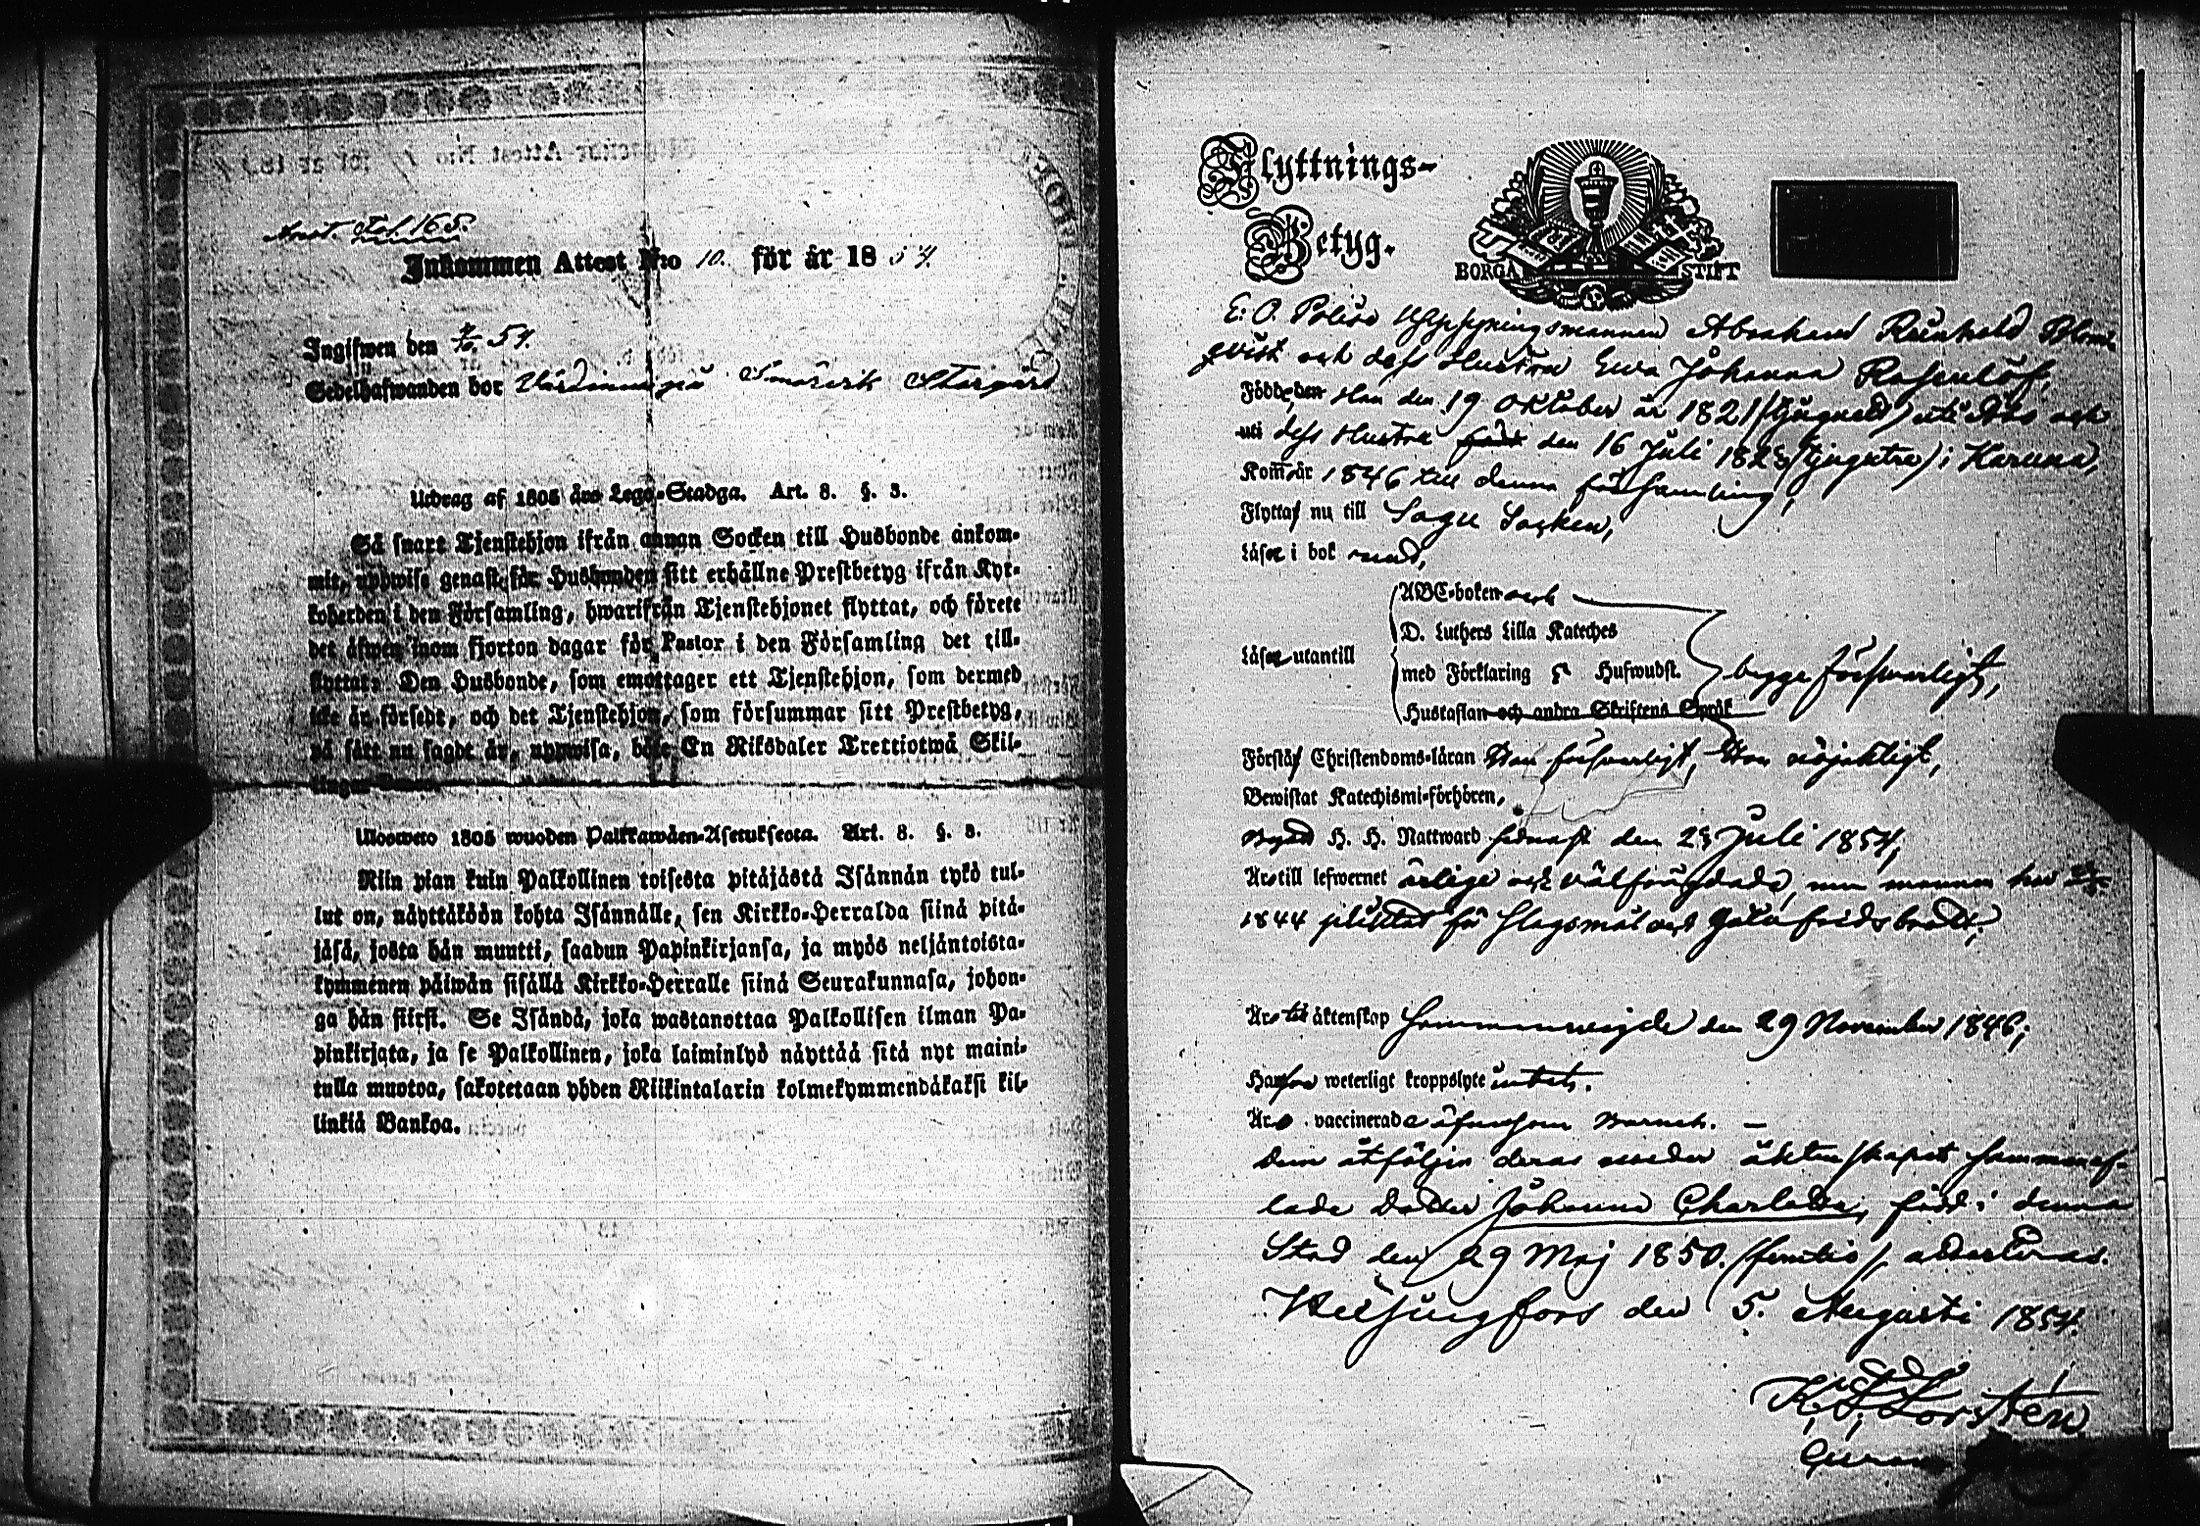 Fol. 165.
Inkommen Attest N:o 10. för år 1854.
Ingifwen den 54.
Sedelhafwanden bor Storgård
Utdrag af 1805 års Lego-Stadga. Art. 8. §. 3.
Så snart Tjenstehjon ifrån annan Socken till Husbonde ankom-
mit, uppwise genast för Husbonden sitt erhållne Prestbetyg ifrån Kyr-
koherden i den Församling, hwarifrån Tjenstehjonet flyttat, och förete
det äfwen inom fjorton dagar för Pastor i den Församling det till-
flyttat. Den Husbonde, som emottager ett Tjenstehjon, som dermed
icke är försedt, och det Tjenstehjon, som försummar sitt Prestbetyg,
på sätt nu sagdt är, uppwisa, böte En Riksdaler Trettiotwå Skil-
lingar
Ulosweto 1805 wuoden Palkkawäen-Asetuksesta. Art. 8. §. 3.
Niin pian kuin Palkollinen toisesta pitäjästä Isännän tykö tul-
lut on, näyttäköön kohta Isännälle, sen Kirkko-Herralda siinä pitä-
jäsä, josta hän muutti, saadun Papinkirjansa, ja myös neljäntoista-
kymmenen päiwän sisällä Kirkko-Herralle siinä Seurakunnasa, johon-
ga hän siirsi. Se Isändä, joka wastanottaa Palkollisen ilman Pa-
pinkirjata, ja se Palkollinen, joka laiminlyö näyttää sitä nyt maini-
tulla muotoa, sakotetaan yhden Riikintalarin kolmekymmendäkaksi kil-
linkiä Bankoa.
Flyttnings-
Betyg.
BORGÅ STIFT
E. O. Police Uppsyningsmannen Abraham Reinhold Blom-
qvist och dess Hustru Ewa Johanna Rosenlöf,
Födde, den Han den 19 October år 1821 (tjuguett) uti Åbo och
uti dess Hustru född den 16 Juli 1823 (tjugutre) i Karuna,
Kom år 1846 till denna församling,
Flytta nu till Sagu Socken,
Läser i bok
ABC-boken och
D. Luthers Lilla Kateches
Läser utantill
med Förklaring Hufwudst.
begge försvarligt,
Hustaflan och andra Skriftens Språk
Förstå Christendoms-läran Han försvarligt, Hon nöjaktigt,
Bewistat Katechismi-förhören,
Begått H. H. Nattward sednast den 23 Juli 1854,
Äro till lefwernet ärlige och välfrägdade, men mannen har
1844 pliktat för slagsmål och gatufridsbrott;
Äro till äktenskap sammanvigde den 29 November 1846;
Hafva weterligt kroppslyte intet.
Äro vaccinerade äfvensom barnet. —
Dem åtföljer deras under äktenskapet sammanaf-
lade dotter Johanna Charlotta, född i denna
Stad den 29 Maj 1850. (femtio), attesteras.
Helsingfors den 5. Augusti 1854.
K. J. Forstén